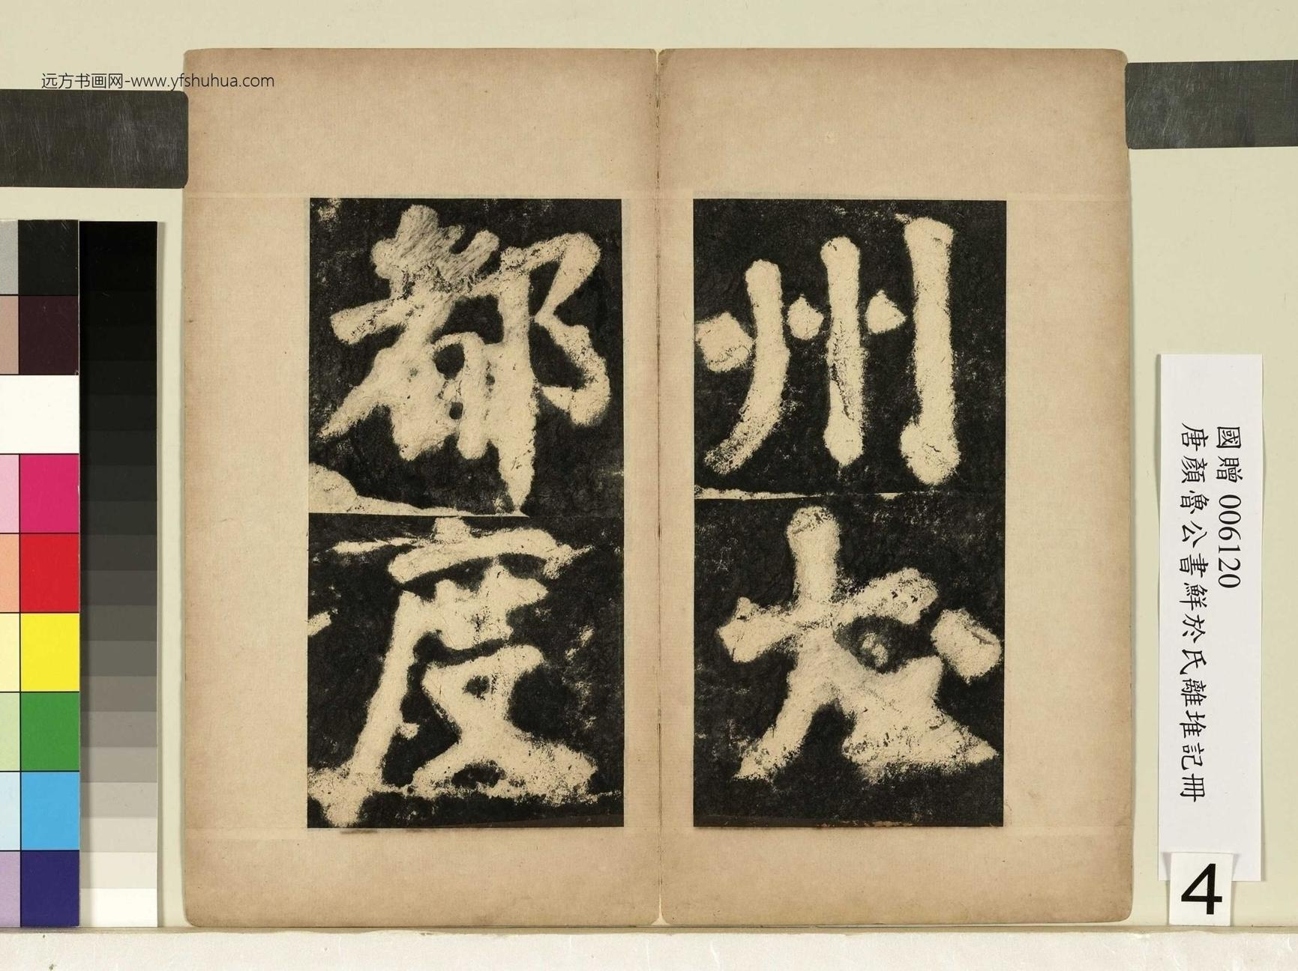 远方书画网-www.yfshuhua.com
州
大
都
度
國贈 006120
唐顏魯公書鮮於氏離堆記冊
4